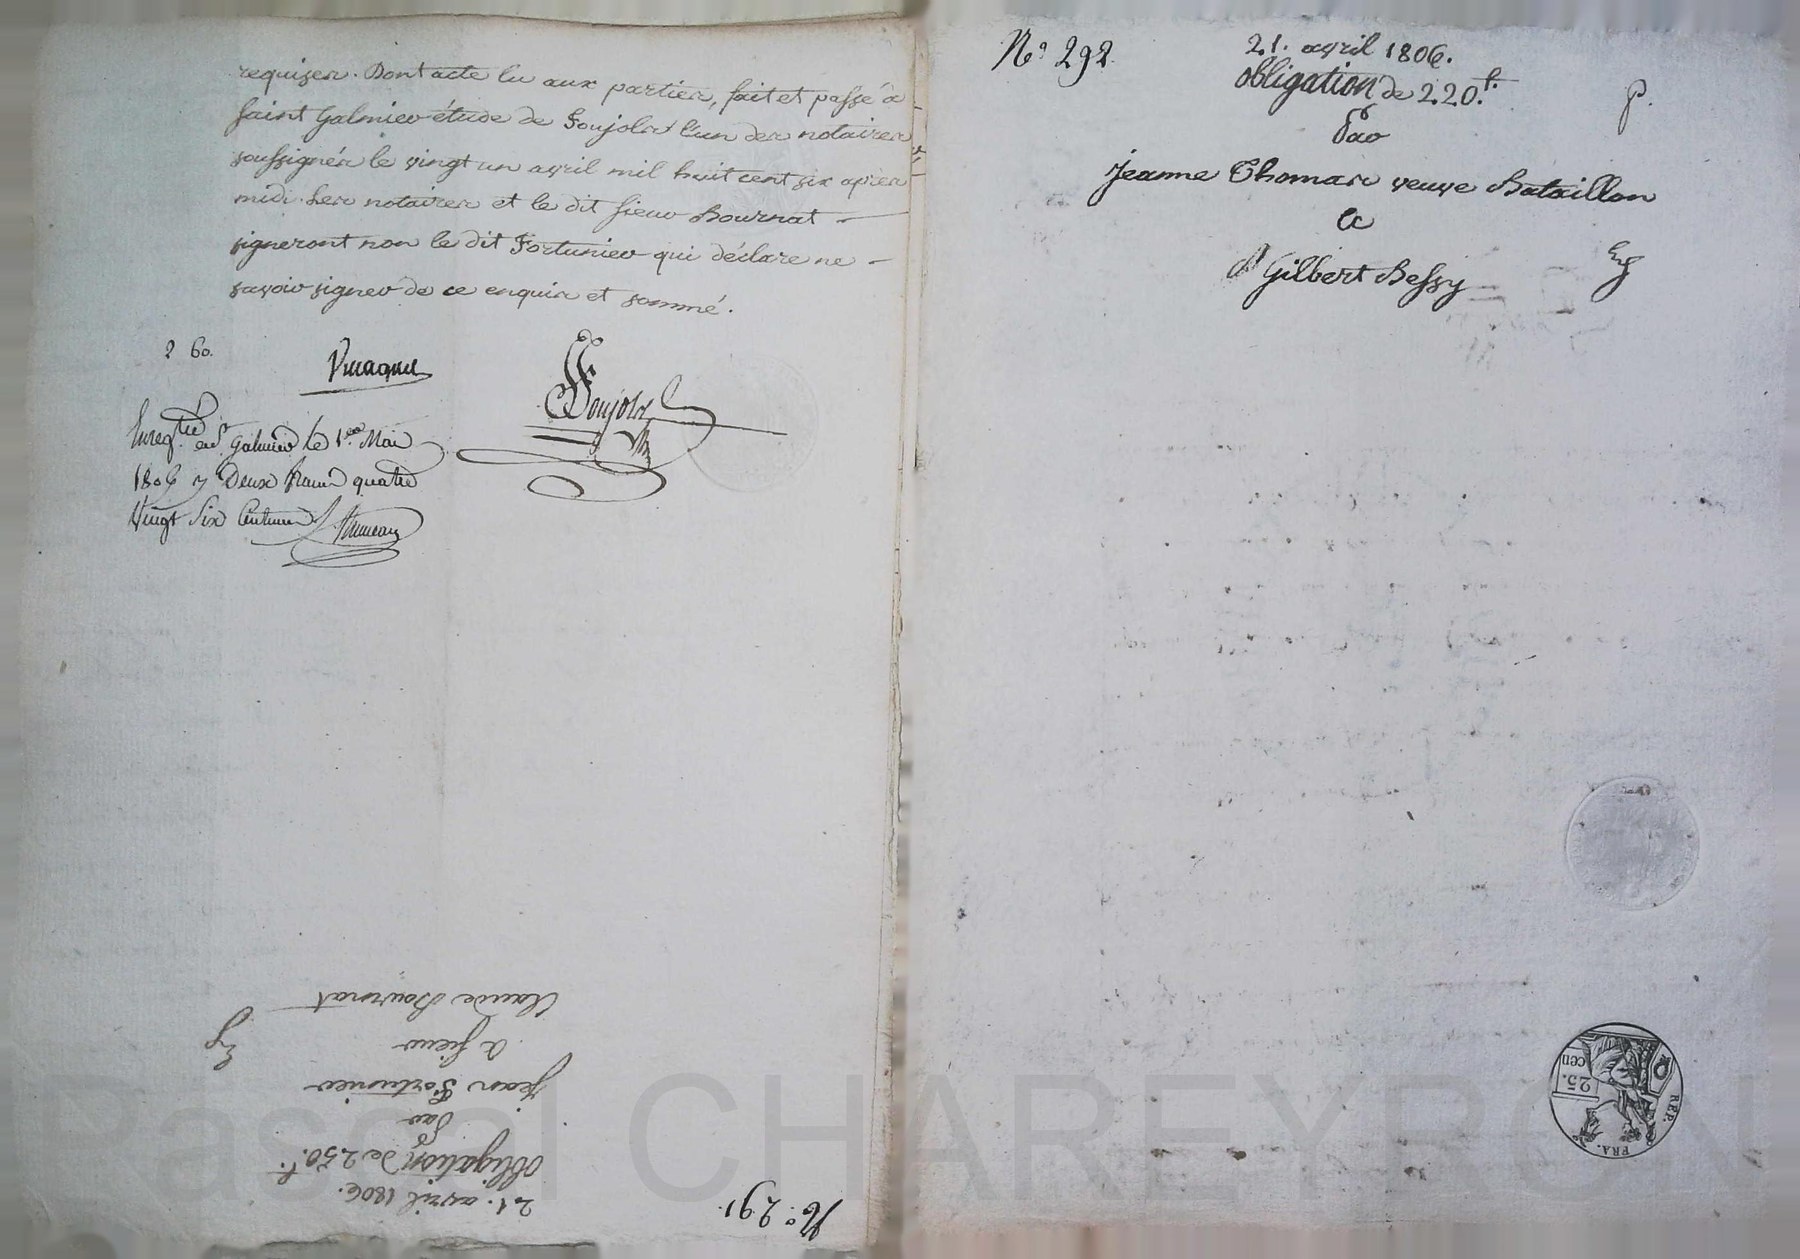 requises. Dont acte lu aux parties, fait et passé à
saint Galmier étude de Foujols l'un des notaires
soussignés le vingt un avril mil huit cent six après
midi. Les notaires et le dit sieur Bournat
signeront non le dit Fortunier qui déclare ne
savoir signer de ce enquis et sommé.
2 60.
Foujols
Enreg.tré à S.t Galmier le 1.er Mai
1806 Deux francs quatre
Vingt Six Centimes
N.o 291.
21. avril 1806.
obligation de 250.#
Par
Jean Fortunier
à sieur
Claude Bournat
N.o 292.
21. avril 1806.
obligation de 220.#
p.
Par
Jeanne Thomas veuve Bataillon
à
Gilbert Bessy
25.
cen
REP.
FRA.
Pascal CHAREYRON